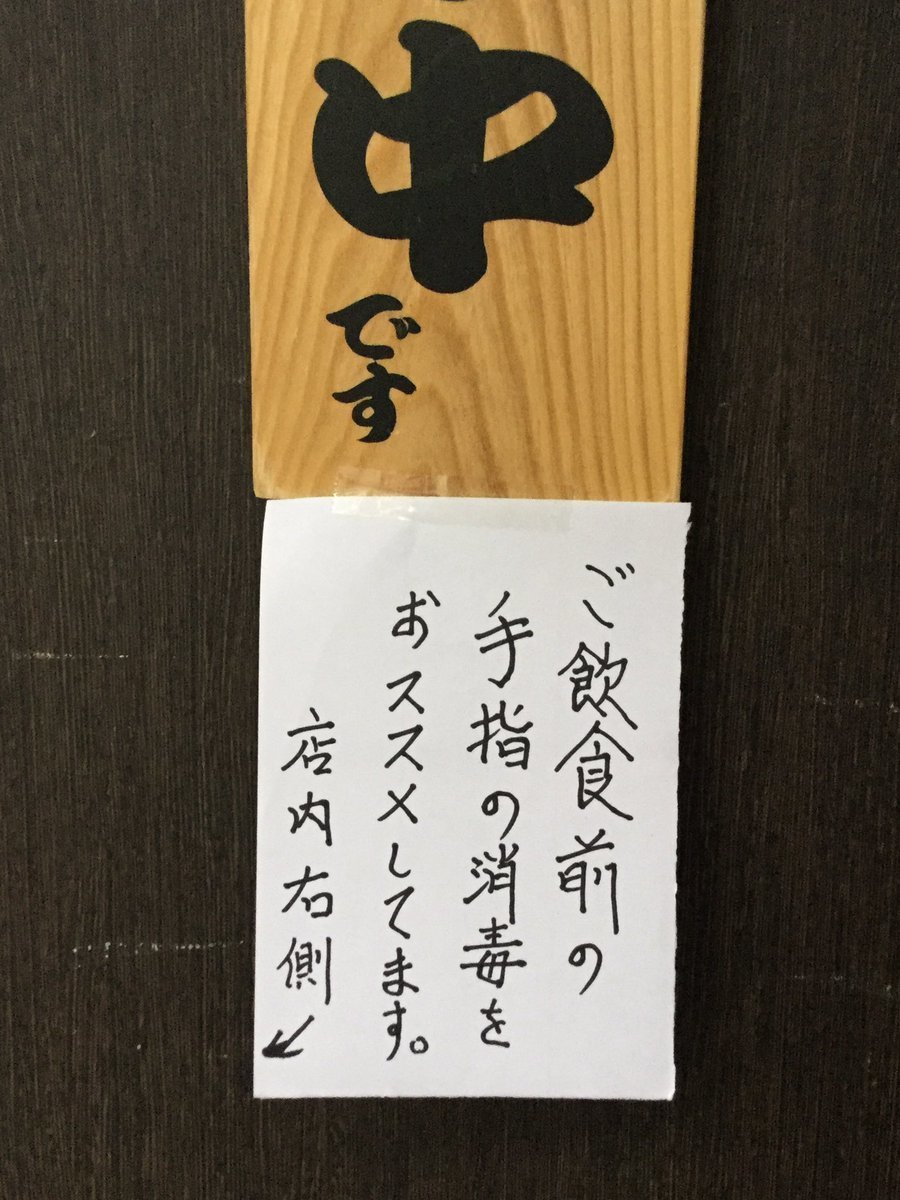 中
です
ご飲食前の
手指の消毒を
おススメしてます。
店内右側↙